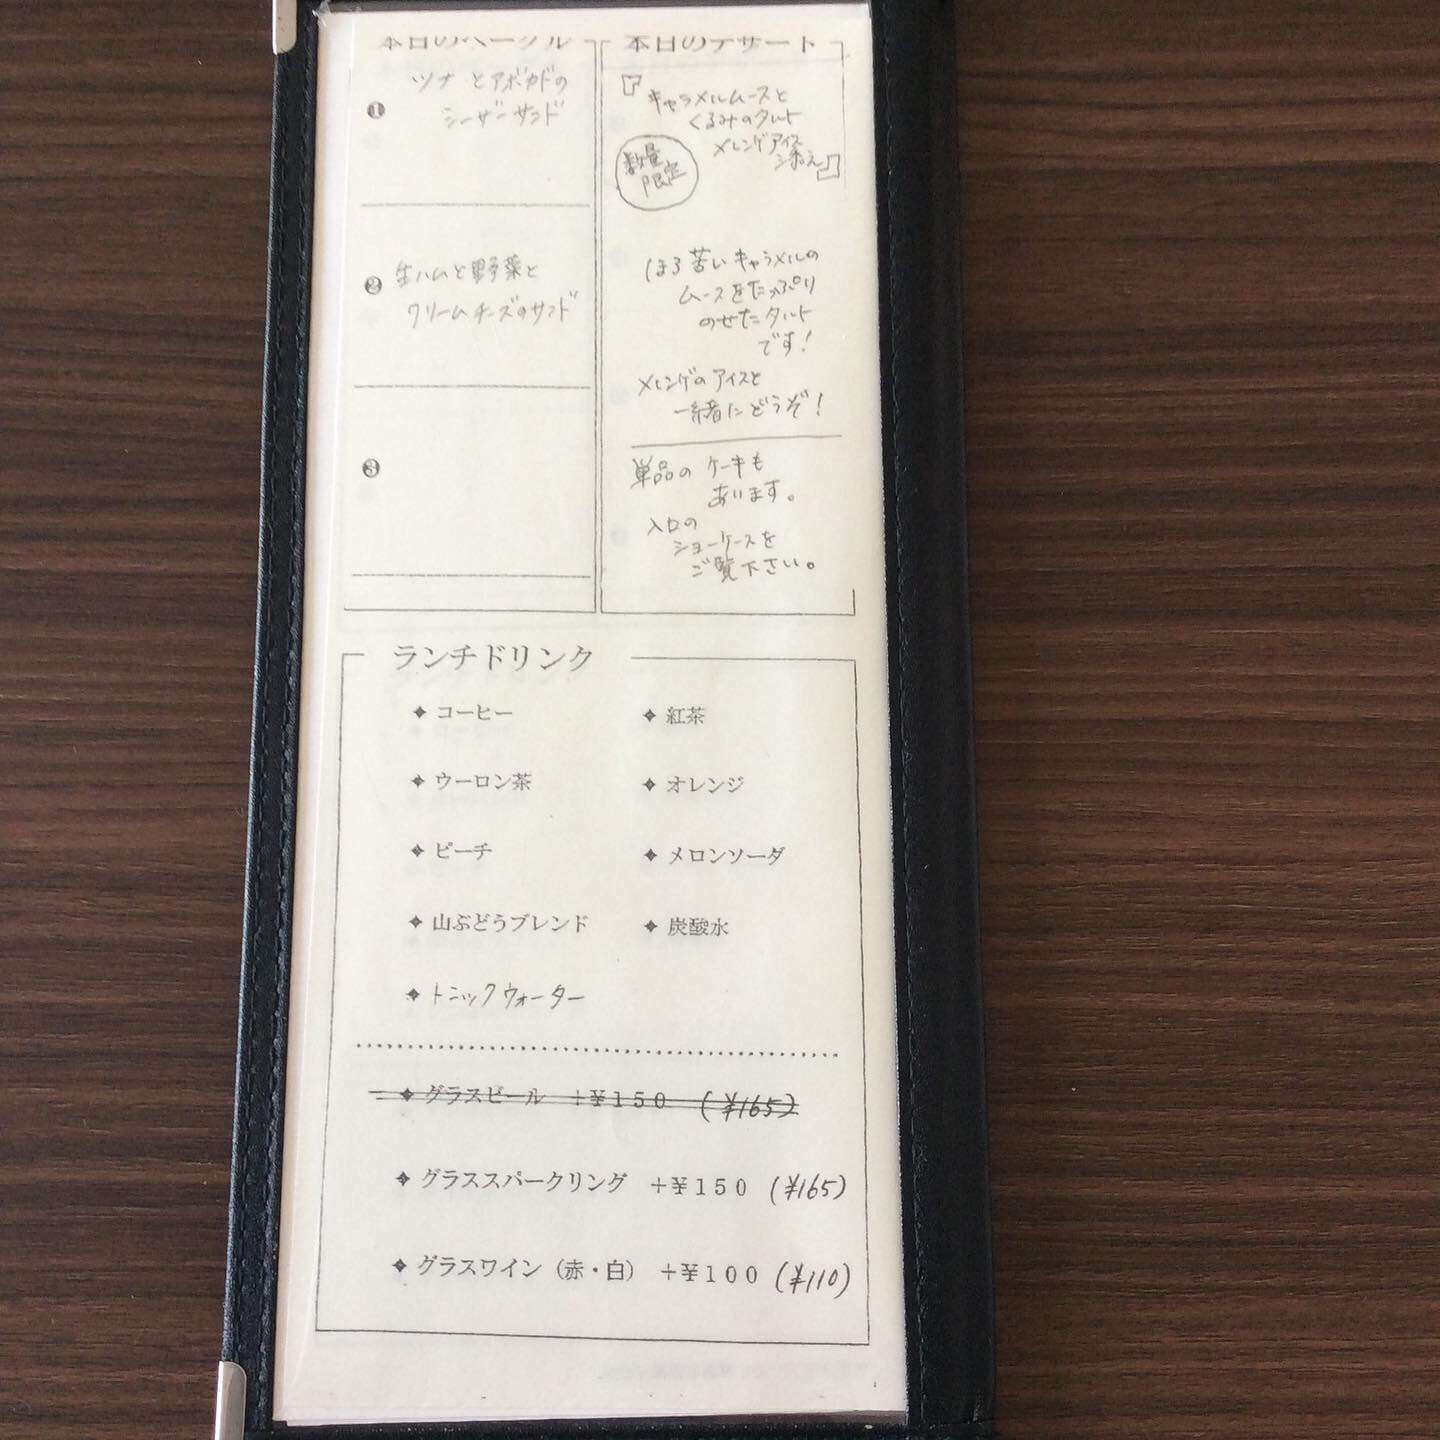 本日のベーグル
❶ ツナとアボカドの
シーザーサンド
❷ 生ハムと野菜と
クリームチーズのサンド
❸
本日のデザート
『キャラメルムースと
くるみのタルト
メレンゲアイス
添え』
数量
限定
ほろ苦いキャラメルの
ムースをたっぷり
のせたタルト
です!
メレンゲのアイスと
一緒にどうぞ!
単品のケーキも
あります。
入口の
ショーケースを
ご覧下さい。
ランチドリンク
✦ コーヒー ✦ 紅茶
✦ ウーロン茶 ✦ オレンジ
✦ ピーチ ✦ メロンソーダ
✦ 山ぶどうブレンド ✦ 炭酸水
✦ トニックウォーター
✦ グラスビール +¥150 (¥165)
✦ グラススパークリング +¥150 (¥165)
✦ グラスワイン(赤・白) +¥100 (¥110)